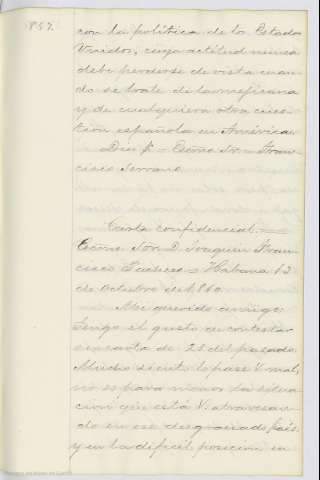 857.
con la política de los Estados
Unidos, cuya actitud nunca
debe perderse de vista cuan-
do se trate de la mejicana
y de cualquiera otra cues-
tion española en América.
Dios &ª = Excmo Sr. = Fran-
cisco Serrano.
Carta confidencial. ==
Excmo Sor. D. Joaquin Fran-
cisco Pacheco = Habana 12
de Octubre de 1860.
Mi querido amigo:
Tengo el gusto de contestar
su carta de 25 del pasado.
Mucho siento lo pase V. mal,
no es para menos la situa-
cion que está V. atravesan-
do en ese desgraciado país
y en la dificil posicion en